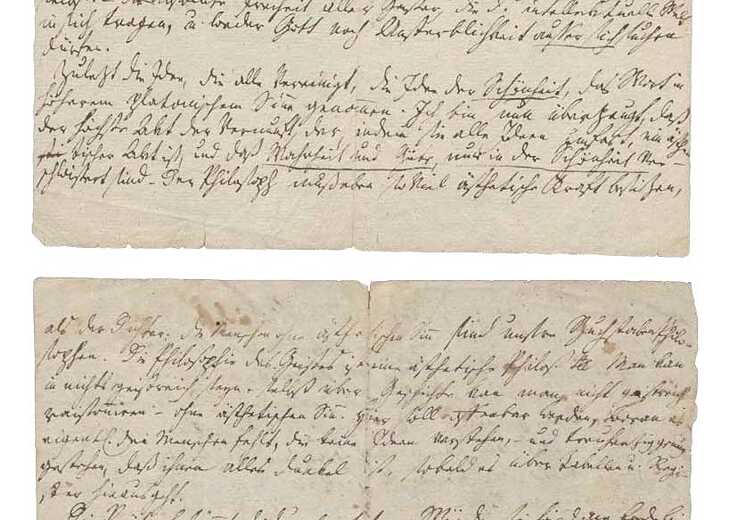 Freiheit aller Geister, die d. intellektuelle Welt
in sich tragen, u. weder Gott noch Unsterblichkeit ausser sich suchen
dürfen.
Zulezt die Idee, die alle vereinigt, die Idee der Schönheit, das Wort in
höherem platonischem Sinne genommen. Ich bin nun überzeugt, daß
der höchste Akt der Vernunft, der, indem sie alle Ideen umfast, ein ästhe-
tischer Akt ist, und daß Wahrheit und Güte, nur in der Schönheit ver-
schwistert sind. Der Philosoph muß eben so viel ästhetische Kraft besitzen,
als der Dichter. die Menschen ohne ästhetischen Sinn sind unsre BuchstabenPhilo-
sophen. Die Philosophie des Geistes ist eine ästhetische Philos. Man kan
in nichts geistreich seyn, selbst über Geschichte kan man nicht geistreich
raisonniren – ohne ästhetischen Sinn. Hier soll offenbar werden, woran es
eigentl. den Menschen fehlt, die keine Ideen verstehen, – und treuherzig genug
gestehen, daß ihnen alles dunkel ist, sobald es über Tabellen u. Regi-
ster hinausgeht.